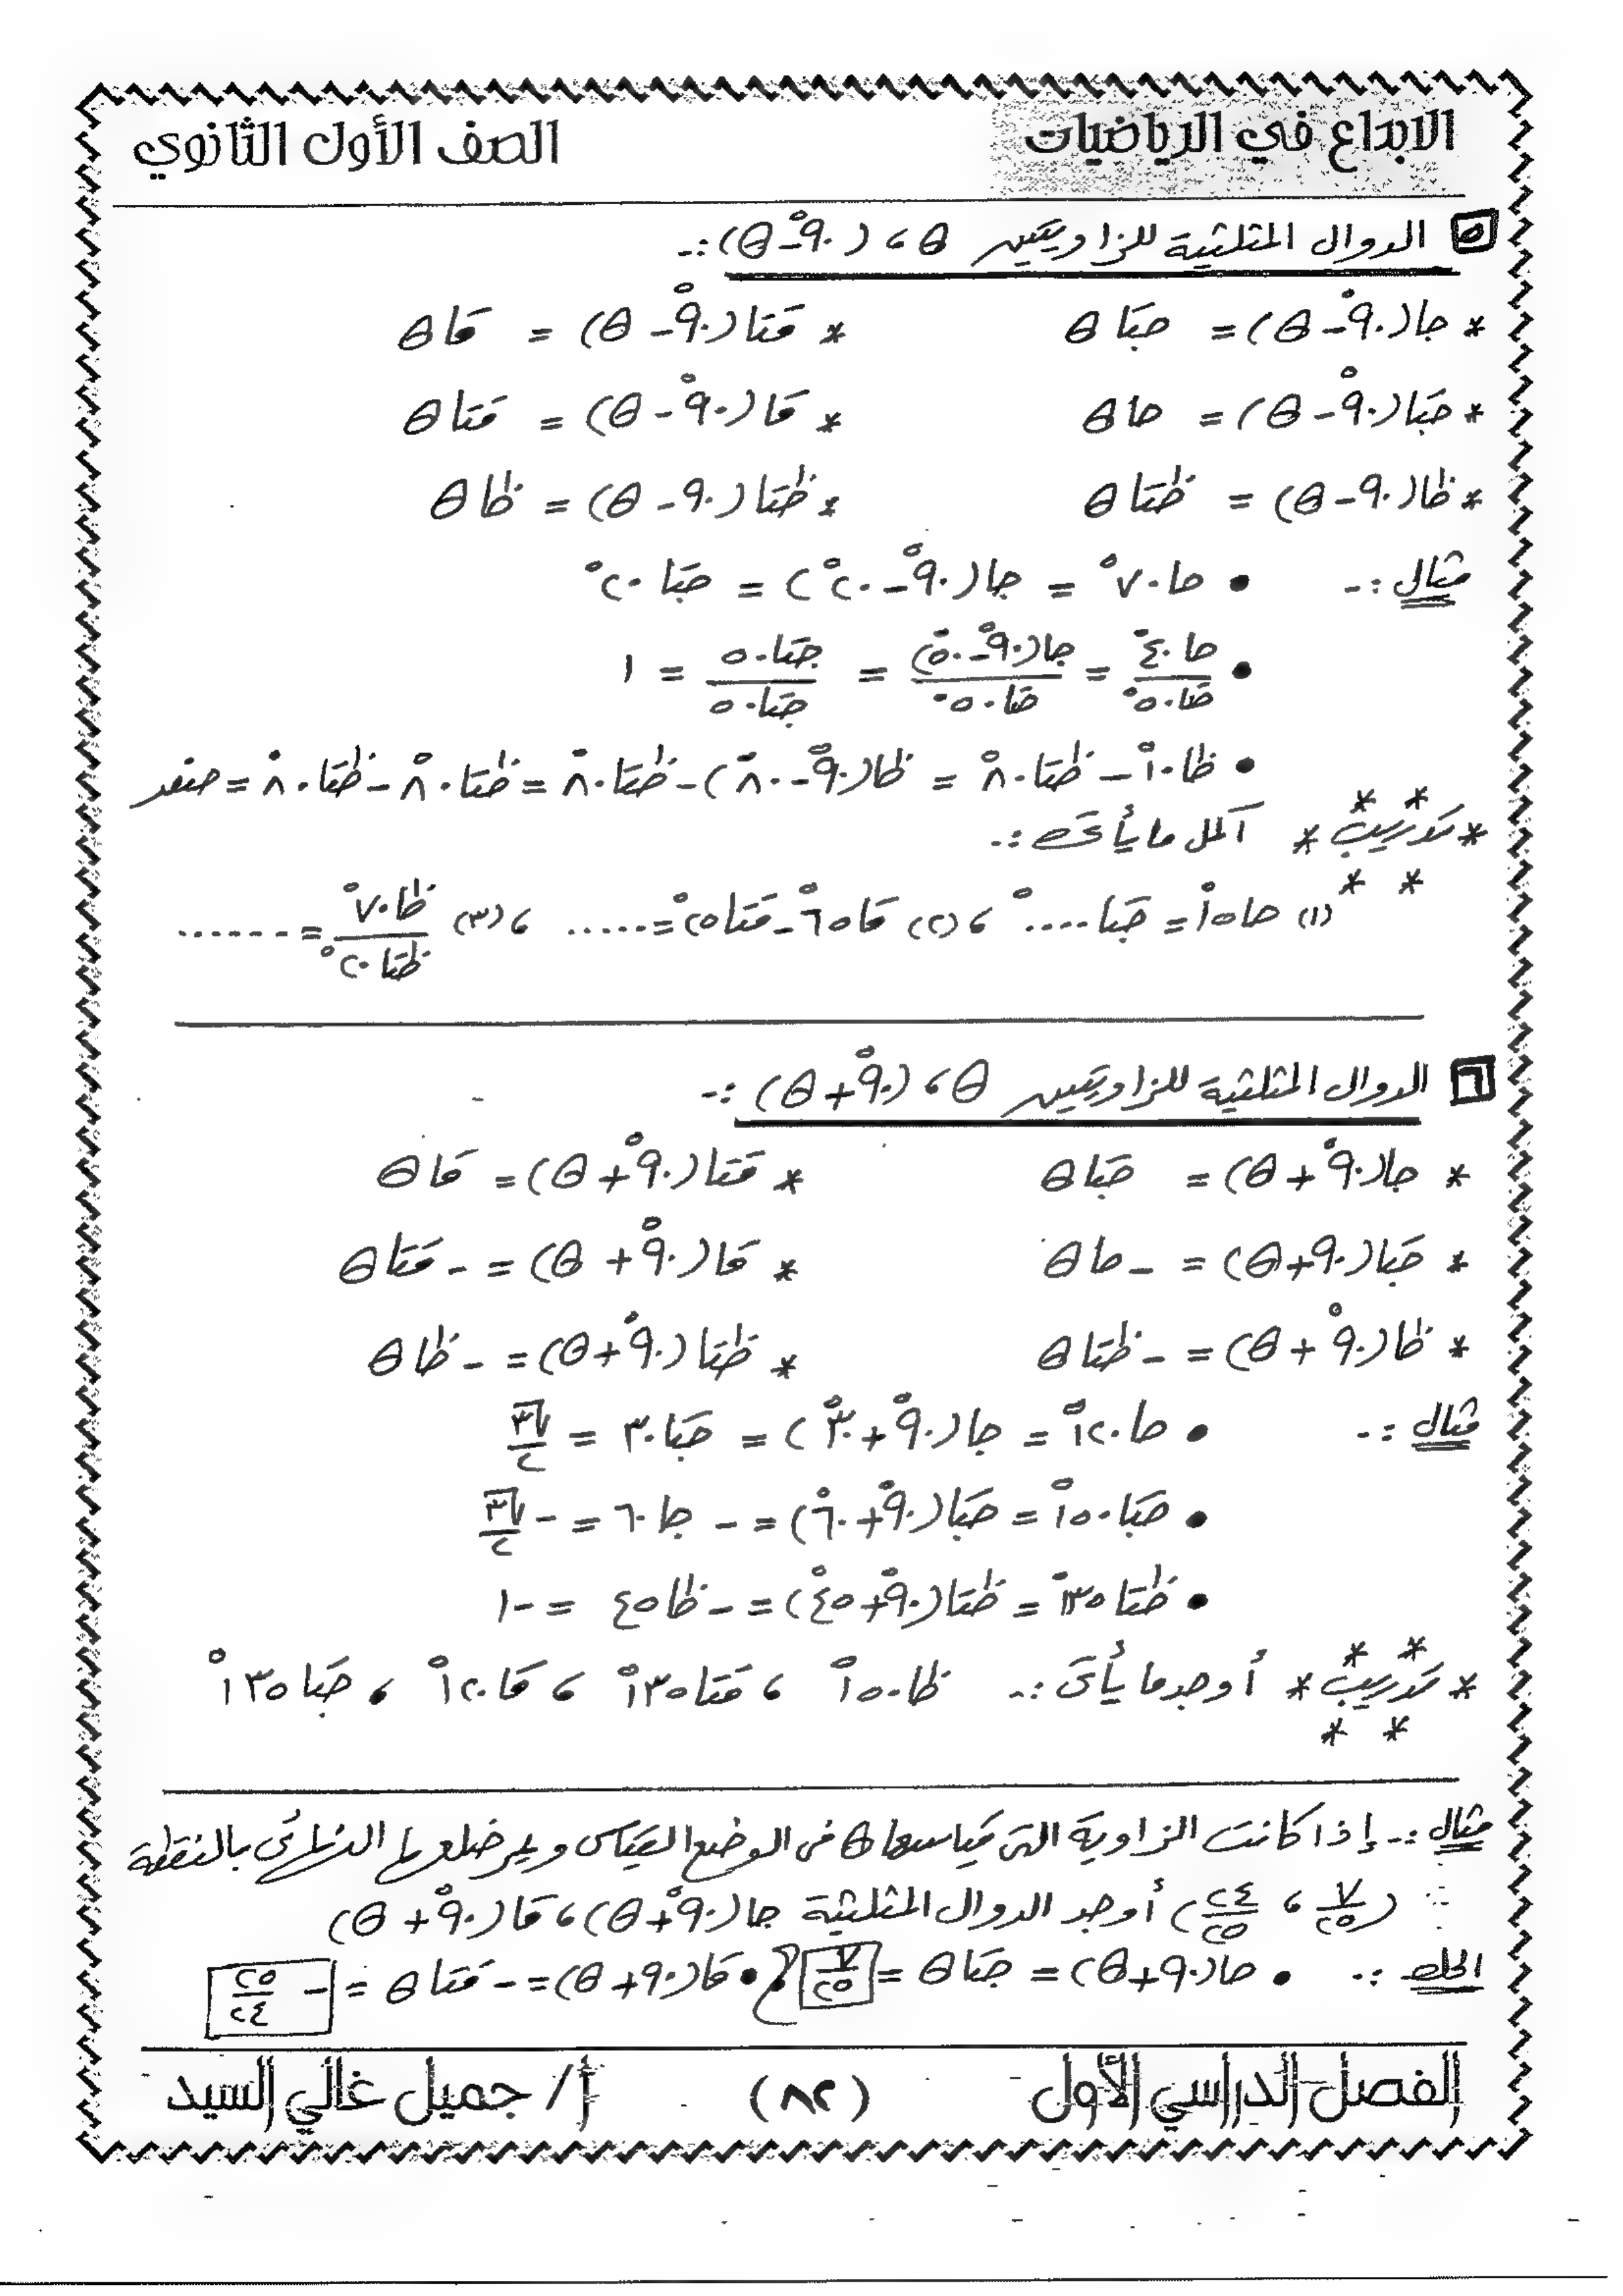 الابداع في الرياضيات الصف الأول الثانوي
٥ الدوال المثلثية للزاويتين θ ، (٩٠° - θ) :-
* جا(٩٠° - θ) = جتا θ * قتا(٩٠° - θ) = قا θ
* جتا(٩٠° - θ) = حا θ * قا(٩٠° - θ) = قتا θ
* ظا(٩٠ - θ) = ظتا θ * ظتا(٩٠ - θ) = ظا θ
مثال :- • حا ٧٠° = جا(٩٠° - ٢٠°) = جتا ٢٠°
• حا ٤٠° / جتا ٥٠° = جا(٩٠° - ٥٠°) / جتا ٥٠° = جتا ٥٠ / جتا ٥٠ = ١
• ظا ١٠° - ظتا ٨٠° = ظا(٩٠° - ٨٠°) - ظتا ٨٠° = ظتا ٨٠° - ظتا ٨٠° = صفر
* تدريب * أكمل ما يأتى :-
(١) حا ١٥° = جتا ....° ، (٢) قا ٦٥° - قتا ٢٥° = ..... ، (٣) ظا ٧٠° / ظتا ٢٠° = ......
٦ الدوال المثلثية للزاويتين θ ، (٩٠° + θ) :-
* جا(٩٠° + θ) = جتا θ * قتا(٩٠° + θ) = قا θ
* جتا(٩٠ + θ) = - حا θ * قا(٩٠° + θ) = - قتا θ
* ظا(٩٠° + θ) = - ظتا θ * ظتا(٩٠° + θ) = - ظا θ
مثال :- • حا ١٢٠° = جا(٩٠° + ٣٠°) = جتا ٣٠ = √٣ / ٢
• جتا ١٥٠° = جتا(٩٠° + ٦٠°) = - جا ٦٠ = - √٣ / ٢
• ظتا ١٣٥° = ظتا(٩٠° + ٤٥°) = - ظا ٤٥ = -١
* تدريب * أوجد ما يأتى :- ظا ١٥٠° ، قتا ١٣٥° ، قا ١٢٠° ، جتا ١٣٥°
مثال :- إذا كانت الزاوية التى قياسها θ فى الوضع القياسى ويمر ضلعها النهائى بالنقطة
(٧/٢٥ ، ٢٤/٢٥) أوجد الدوال المثلثية جا(٩٠° + θ) ، قا(٩٠° + θ)
الحل :- • حا(٩٠ + θ) = جتا θ = ٧/٢٥ • قا(٩٠ + θ) = - قتا θ = - ٢٥/٢٤
الفصل الدراسي الأول (٨٢) أ / جميل غالي السيد